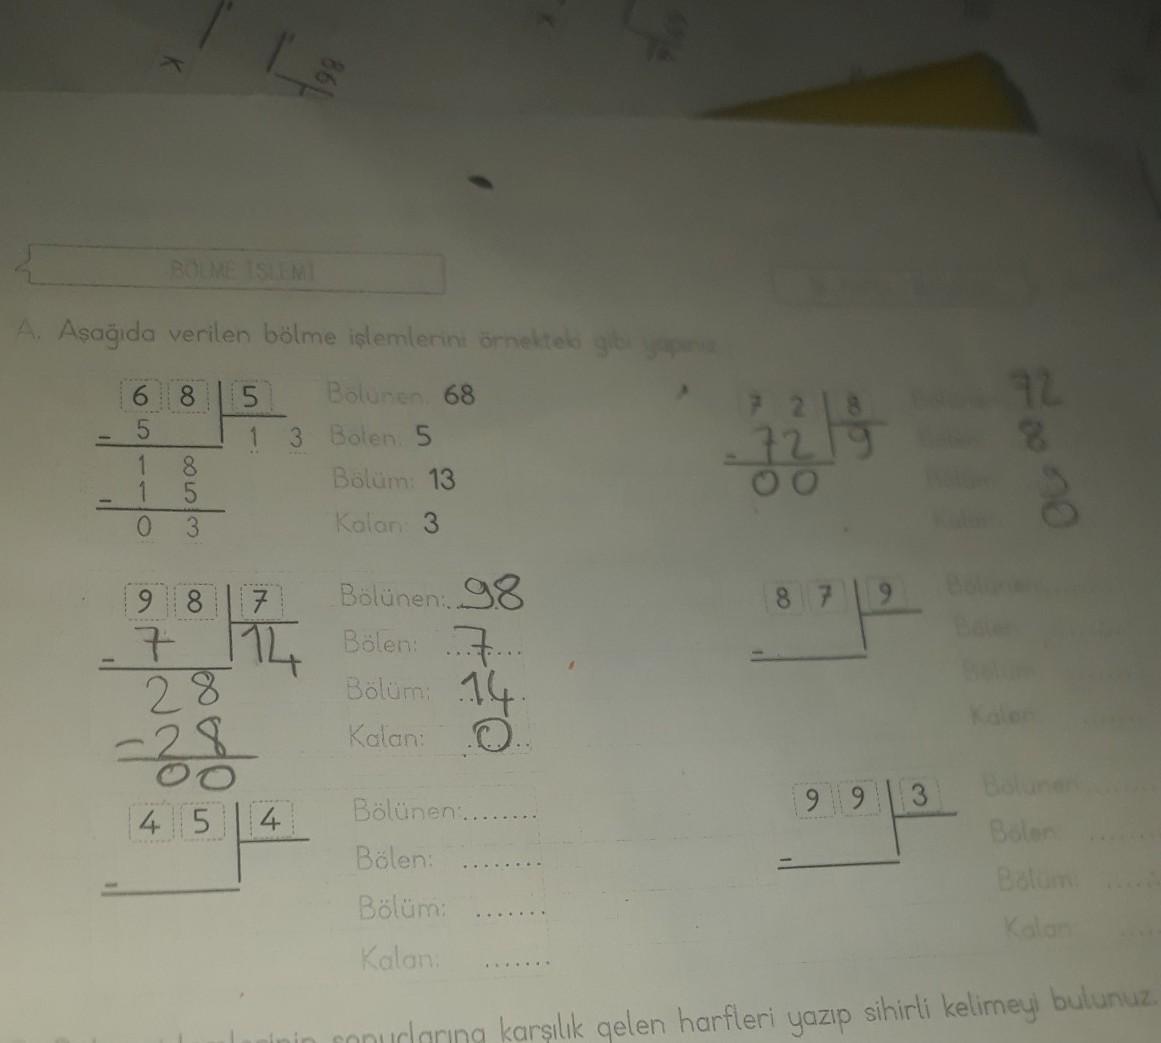 BÖLME İŞLEMİ
A. Aşağıda verilen bölme işlemlerini örnekteki gibi yapınız.
6 8 5
- 5 1 3
1 8
- 1 5
0 3
Bölünen: 68
Bölen: 5
Bölüm: 13
Kalan: 3
7 2 8
- 72 9
00
Bölünen: 72
Bölen: 8
Bölüm: 9
Kalan: 0
9 8 7
- 7 14
28
-28
00
Bölünen: 98
Bölen: 7
Bölüm: 14
Kalan: 0
8 7 9
-
Bölünen:
Bölen:
Bölüm:
Kalan:
4 5 4
-
Bölünen:........
Bölen: ........
Bölüm: .......
Kalan: .......
9 9 3
-
Bölünen:
Bölen: ......
Bölüm: .....
Kalan: ....
sonuçlarına karşılık gelen harfleri yazıp sihirli kelimeyi bulunuz.